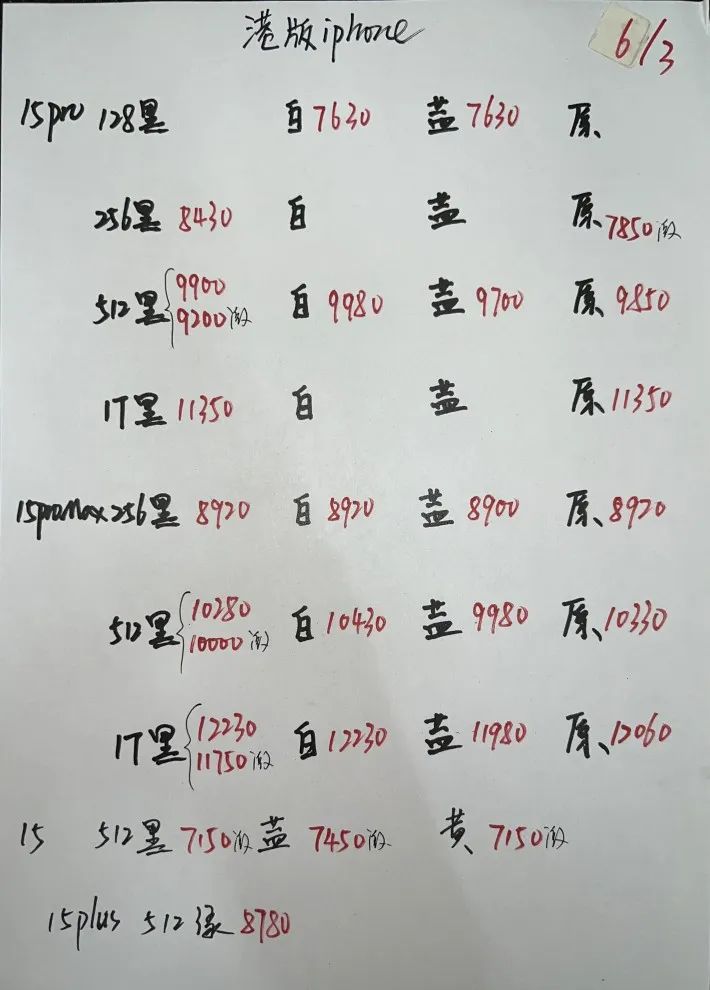 港版iphone 6/3
15pro 128黑 白7630 蓝7630 原
256黑 8430 白 蓝 原7850激
512黑 9900 9200激 白9980 蓝9700 原9850
1T黑 11350 白 蓝 原11350
15proMax256黑 8920 白8920 蓝8900 原8920
512黑 10280 10000激 白10430 蓝9980 原10330
1T黑 12230 11750激 白12230 蓝11980 原12060
15 512黑7150激 蓝7450激 黄7150激
15plus 512绿8780